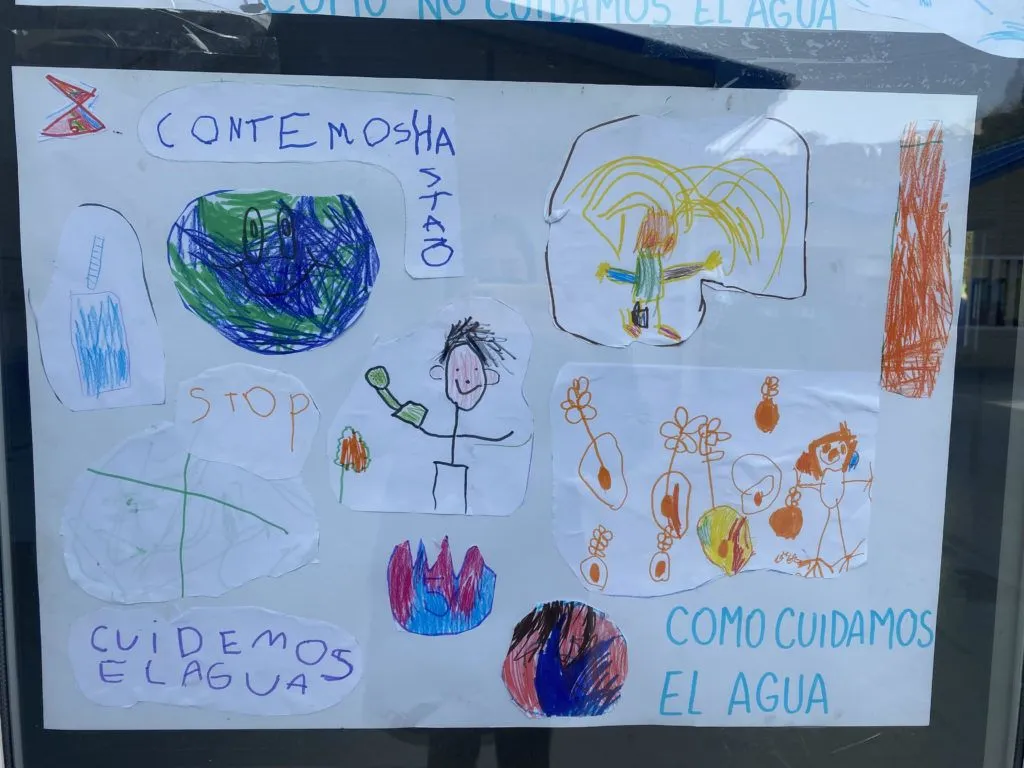 COMO NO CUIDAMOS EL AGUA
CONTEMOSHA
STAO
STOP
5
CUIDEMOS
EL AGUA
COMO CUIDAMOS
EL AGUA